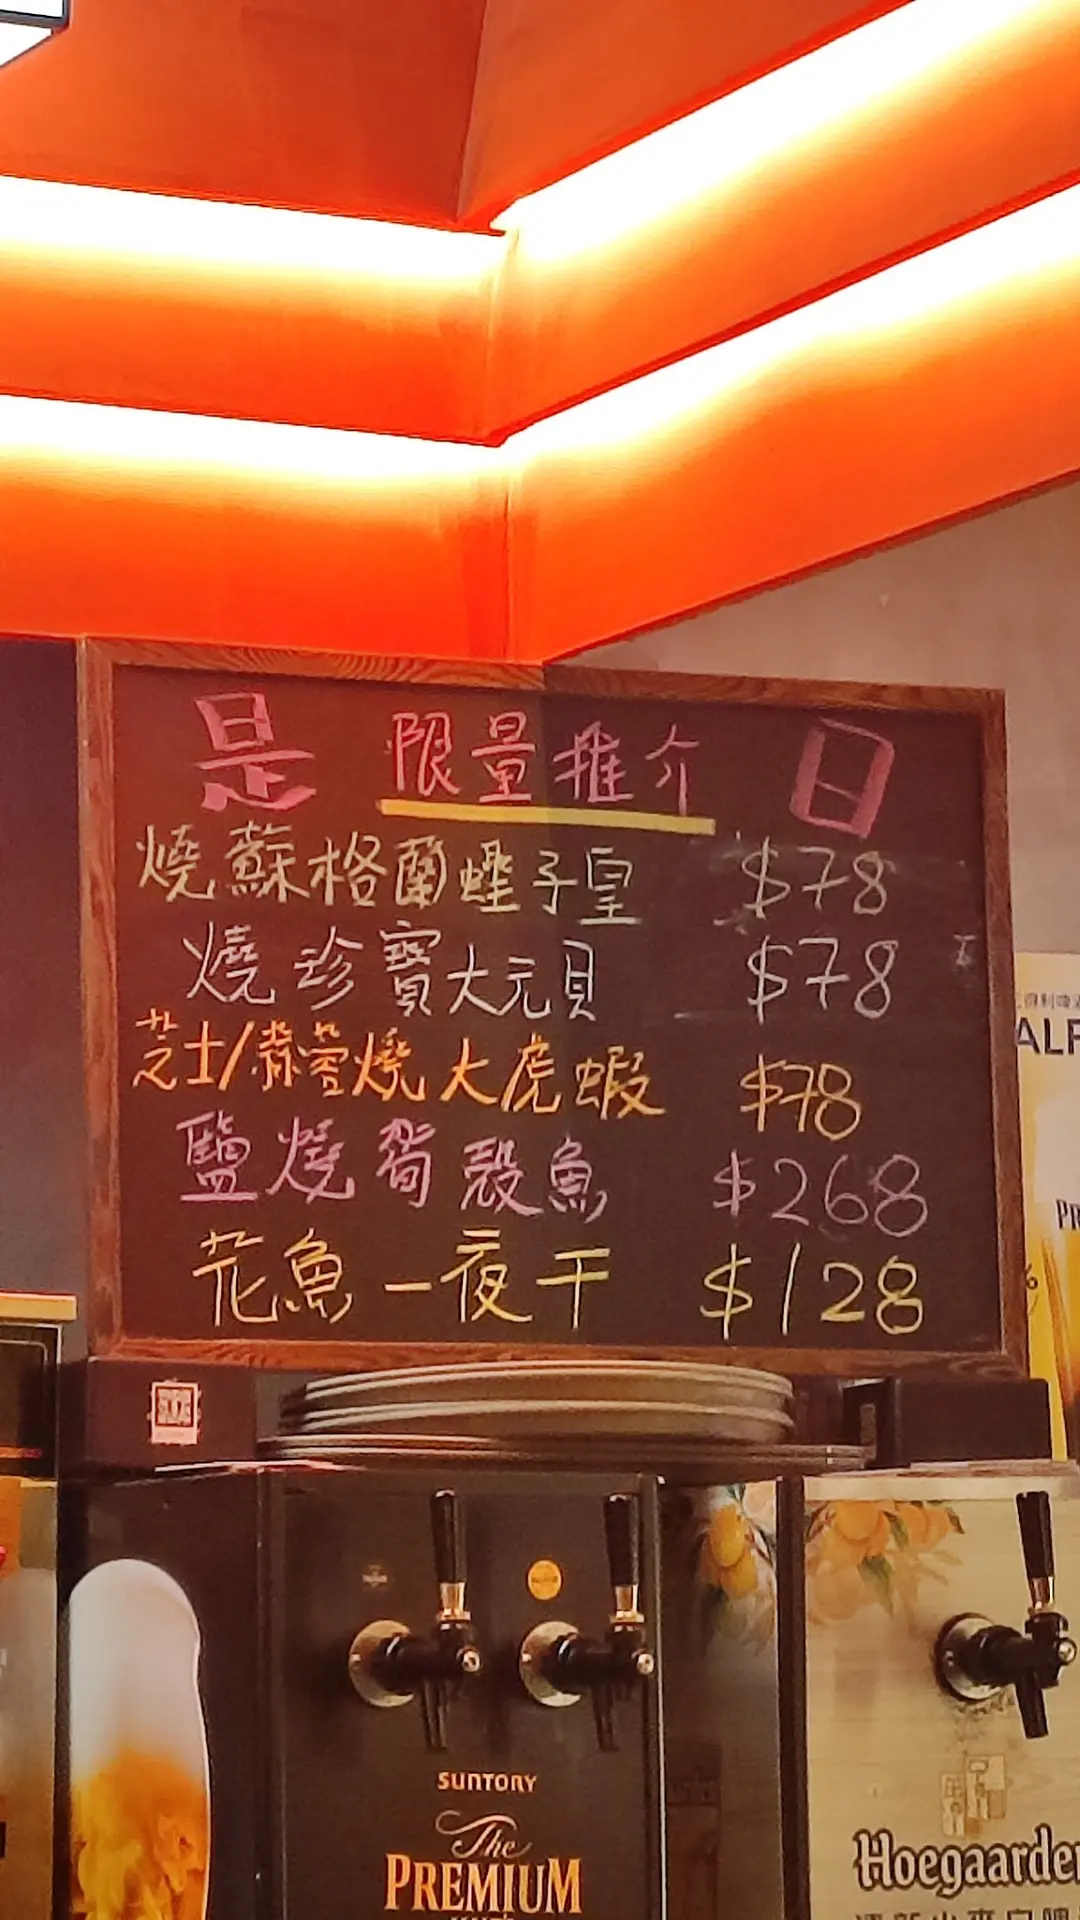 是 限量推介 日
燒蘇格蘭蟶子皇 $78
燒珍寶大元貝 $78
芝士/蒜蓉燒大虎蝦 $78
鹽燒筍殼魚 $268
花魚一夜干 $128
ALF
SUNTORY
The
PREMIUM
Hoegaarden